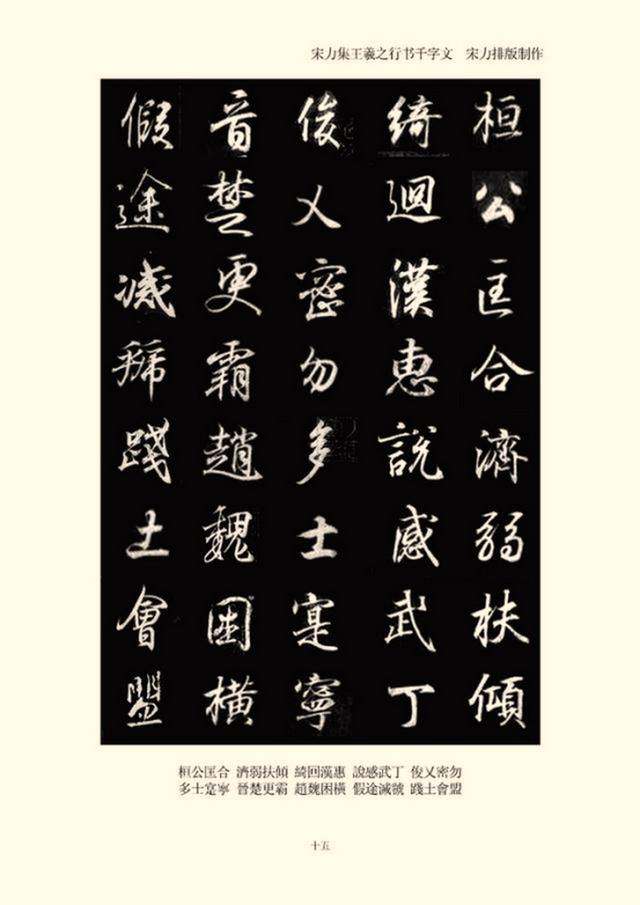 宋力集王羲之行书千字文 宋力排版制作
桓公匡合濟弱扶傾
綺迴漢惠說感武丁
俊乂密勿多士寔寧
晉楚更霸趙魏困橫
假途滅虢踐土會盟
桓公匡合 濟弱扶傾 綺回漢惠 說感武丁 俊乂密勿
多士寔寧 晉楚更霸 趙魏困橫 假途滅虢 踐土會盟
十五